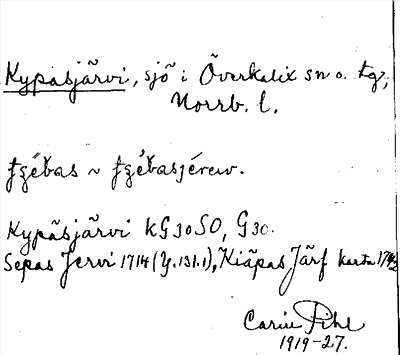 Kypäsjärvi, sjö i Överkalix sn o. tg,
Norrb. l.
Kypäsjärvi KG 30 SO, G 30.
Sepas Jervi 1714 (Y. 131.1), Kiäpas Järf karta
Carin Pihl
1919-27.